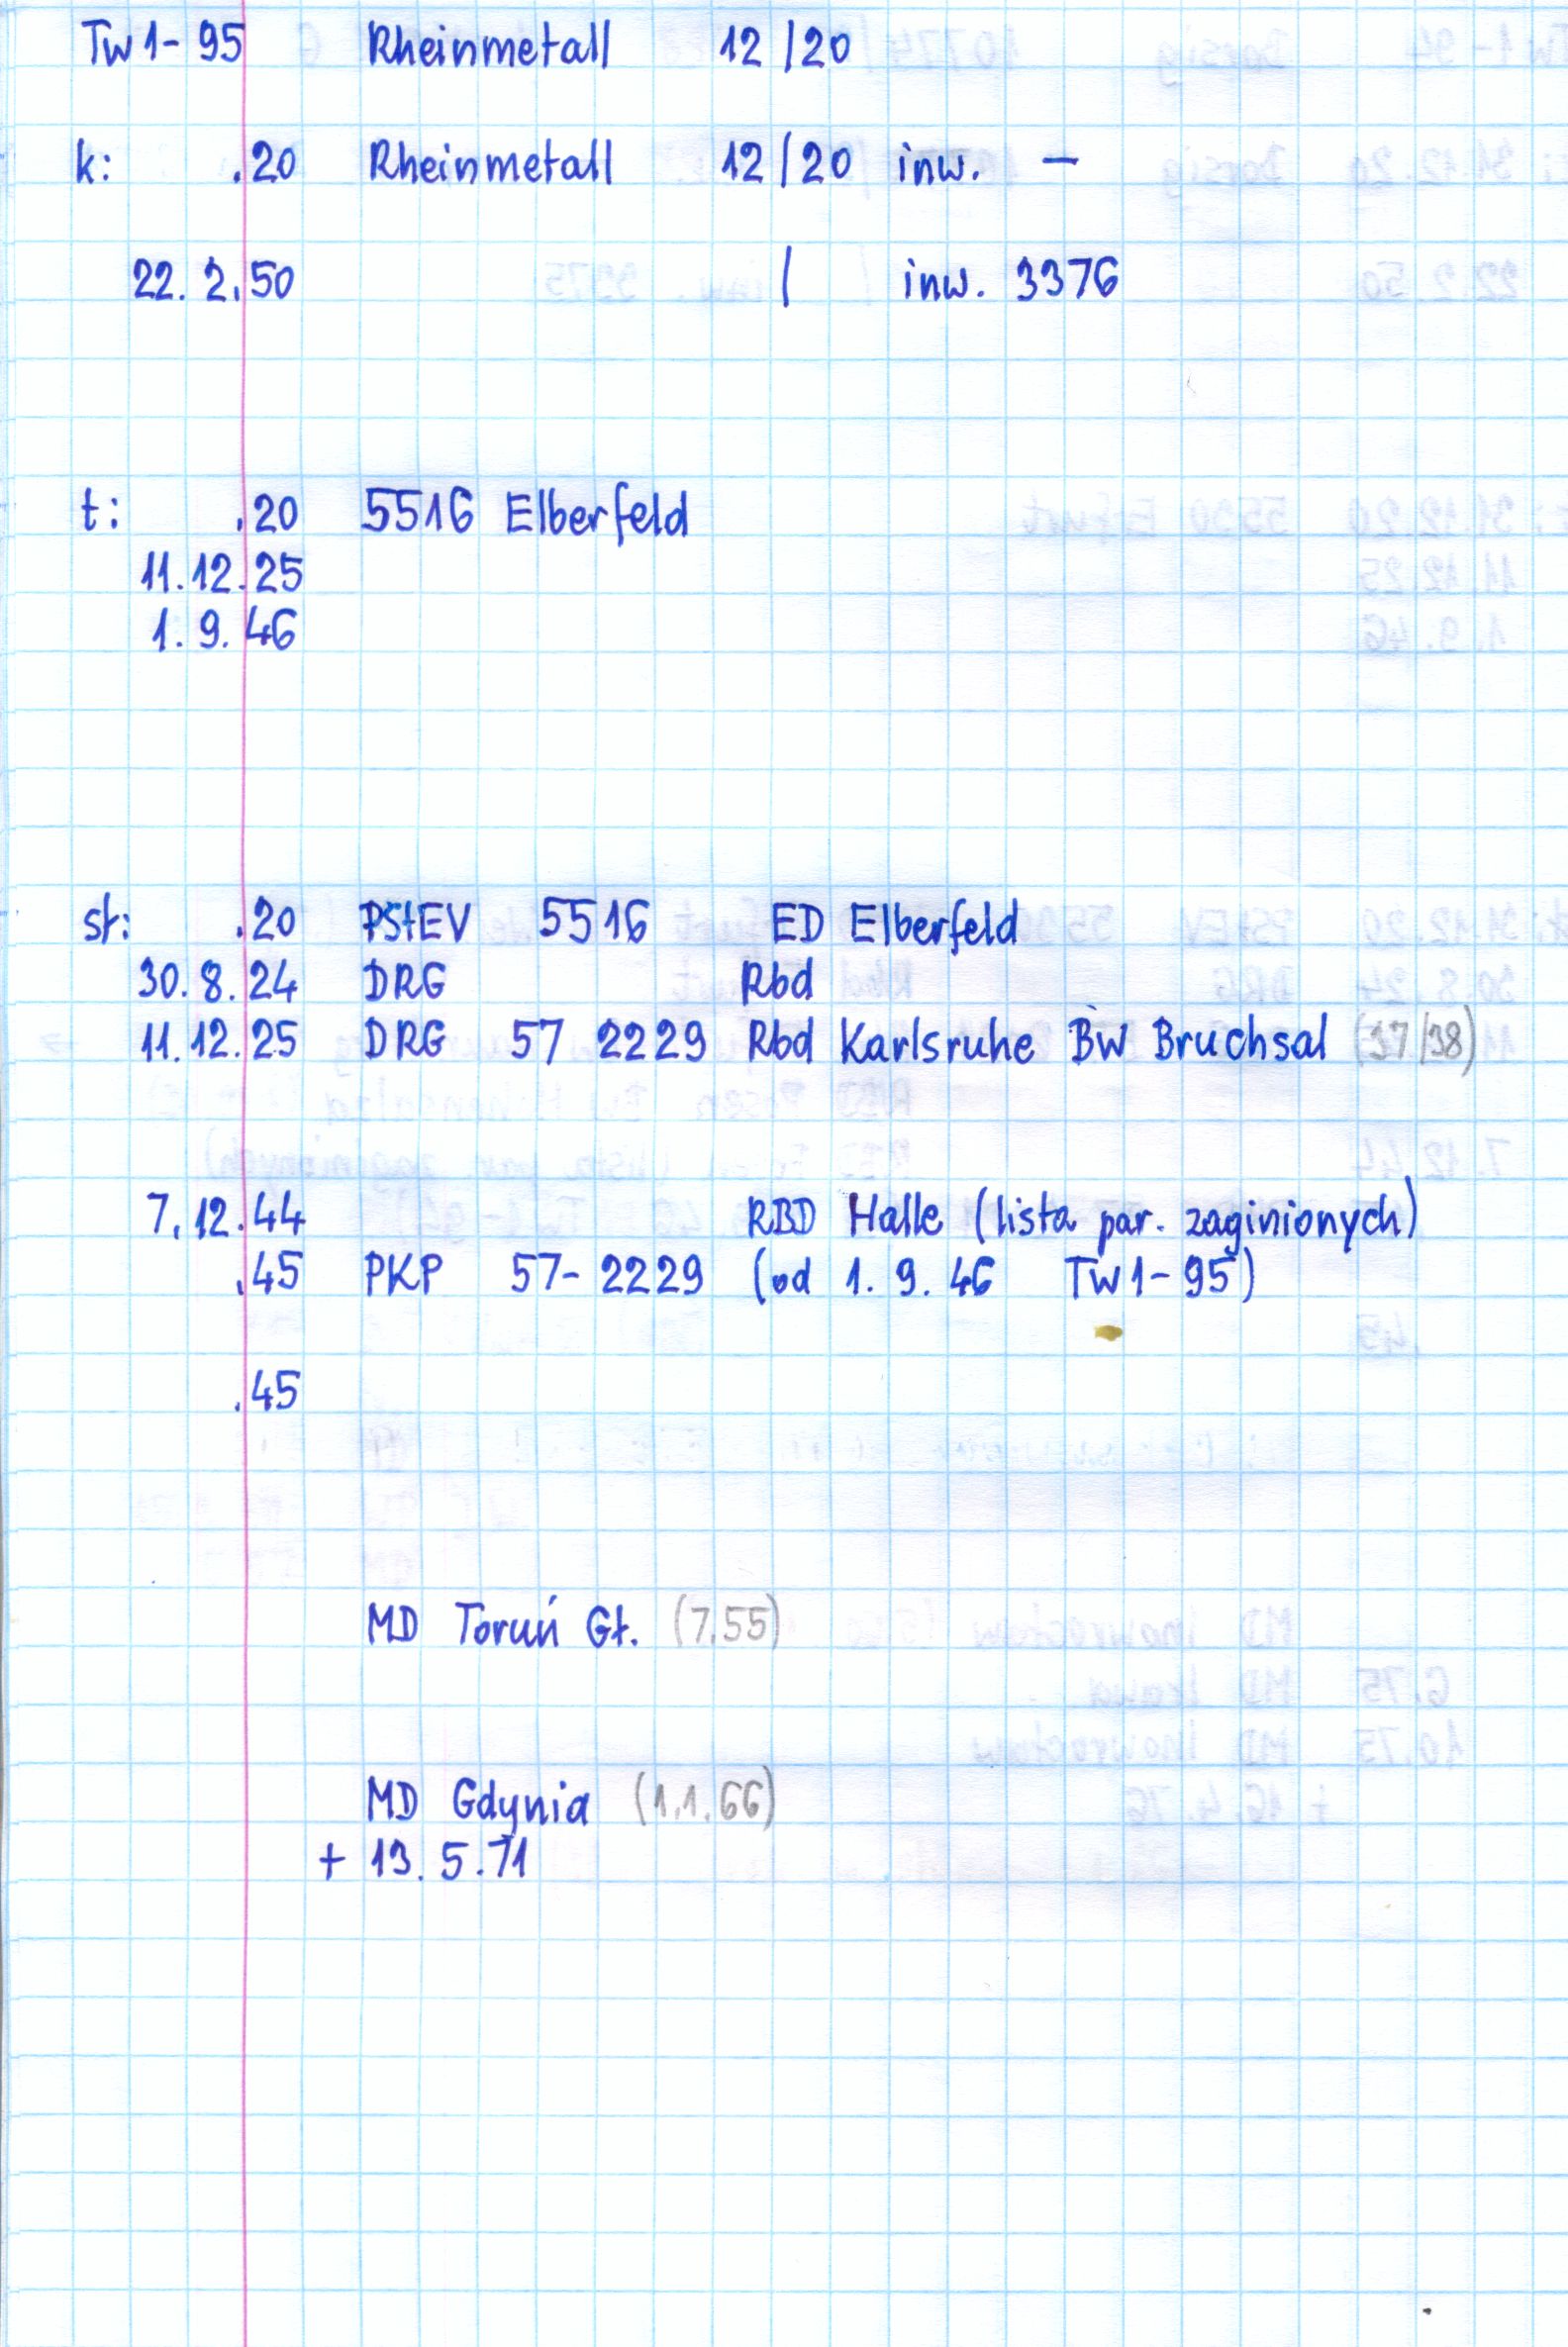 Tw1-95 Rheinmetall 12/20
k: .20 Rheinmetall 12/20 inw. —
22.2.50 / inw. 3376
t: .20 5516 Elberfeld
11.12.25
1.9.46
st: .20 PStEV 5516 ED Elberfeld
30.8.24 DRG Rbd
11.12.25 DRG 57 2229 Rbd Karlsruhe Bw Bruchsal (37/38)
7.12.44 RBD Halle (lista par. zaginionych)
.45 PKP 57-2229 (od 1.9.46 Tw1-95)
.45
MD Toruń Gł. (7.55)
MD Gdynia (1.1.66)
+ 13.5.71